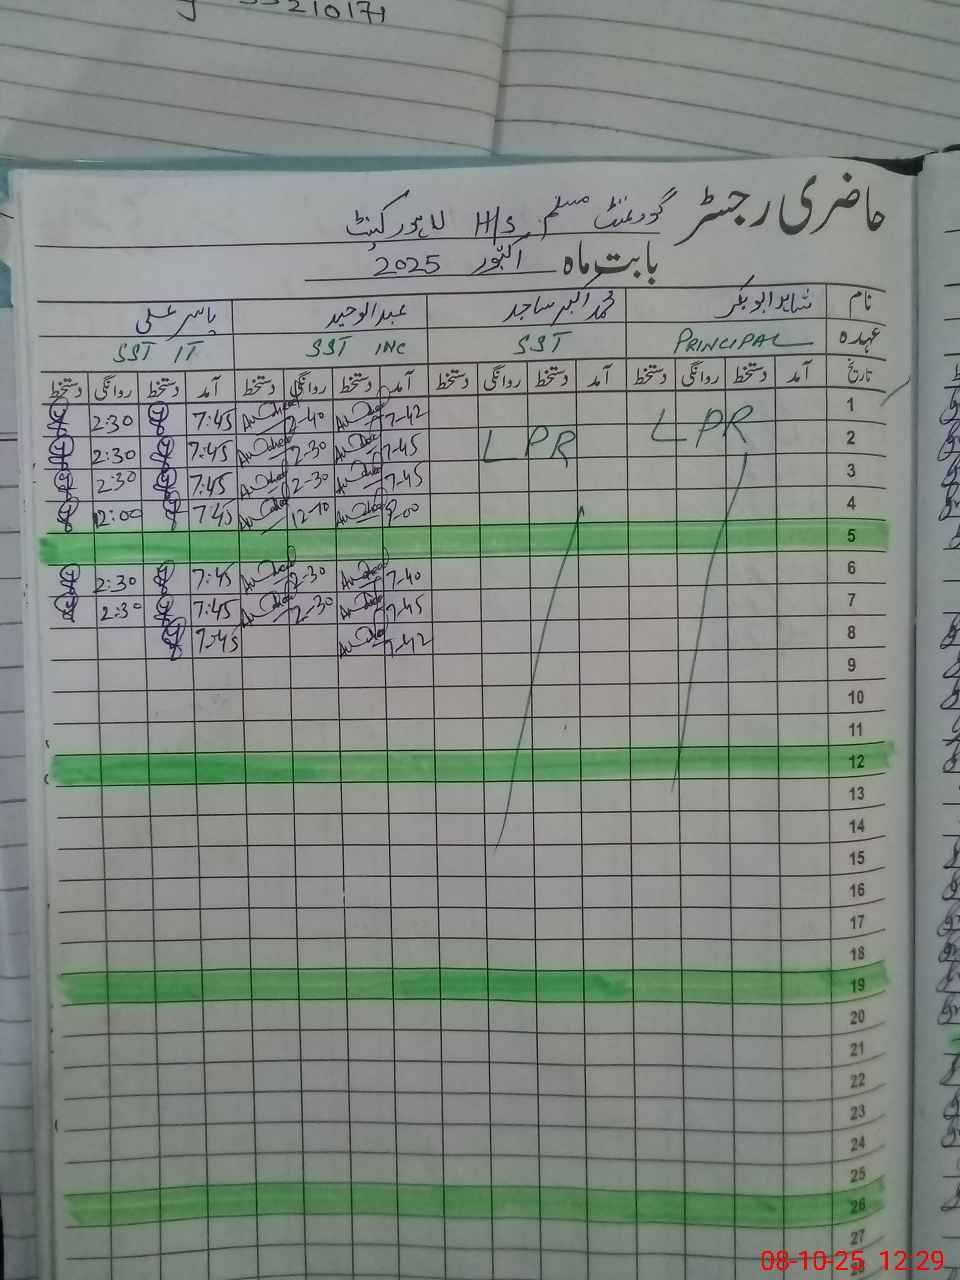 55210171
حاضری رجسٹر گورنمنٹ مسلم H/S لاہور کینٹ
بابت ماہ اکتوبر 2025
نام شاہد ابوبکر محمد اکبر ساجد عبدالوحید یاسر علی
عہدہ PRINCIPAL SST SST INC SST IT
تاریخ آمد دستخط روانگی دستخط آمد دستخط روانگی دستخط آمد دستخط روانگی دستخط آمد دستخط روانگی دستخط
1 7-42 2-40 7:45 2:30
2 LPR LPR 7-45 2-30 7:45 2:30
3 7-45 2-30 7:45 2:30
4 8-00 12-10 7:45 12:00
5
6 7-40 2-30 7:45 2:30
7 7-45 2-30 7:45 2:30
8 7-42 7:45
9
10
11
12
13
14
15
16
17
18
19
20
21
22
23
24
25
26
27
28
08-10-25 12:29